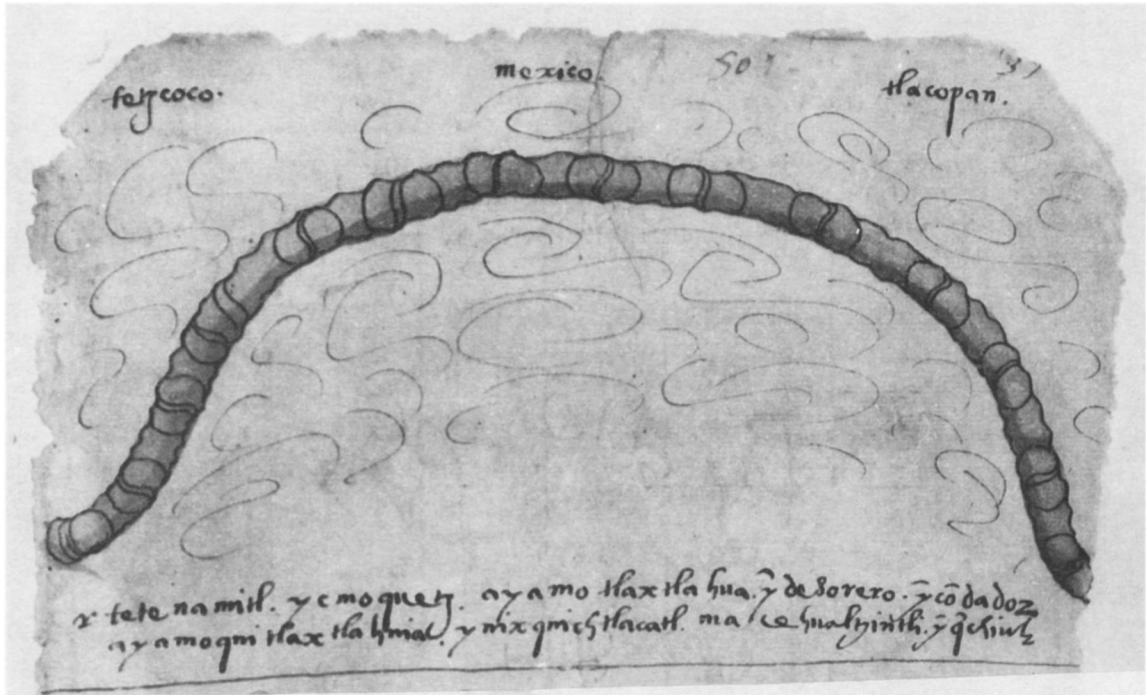 tetzcoco.
mexico.
50
tlacopan.
tetenamitl. ycmoquetz. ayamo tlaxtlahua. ỹ desorero. ỹ cõdadoz
ayamoquitlaxtlahuia. ynixquichtlacatl. macehualtzintli. ỹ q̃chiuh